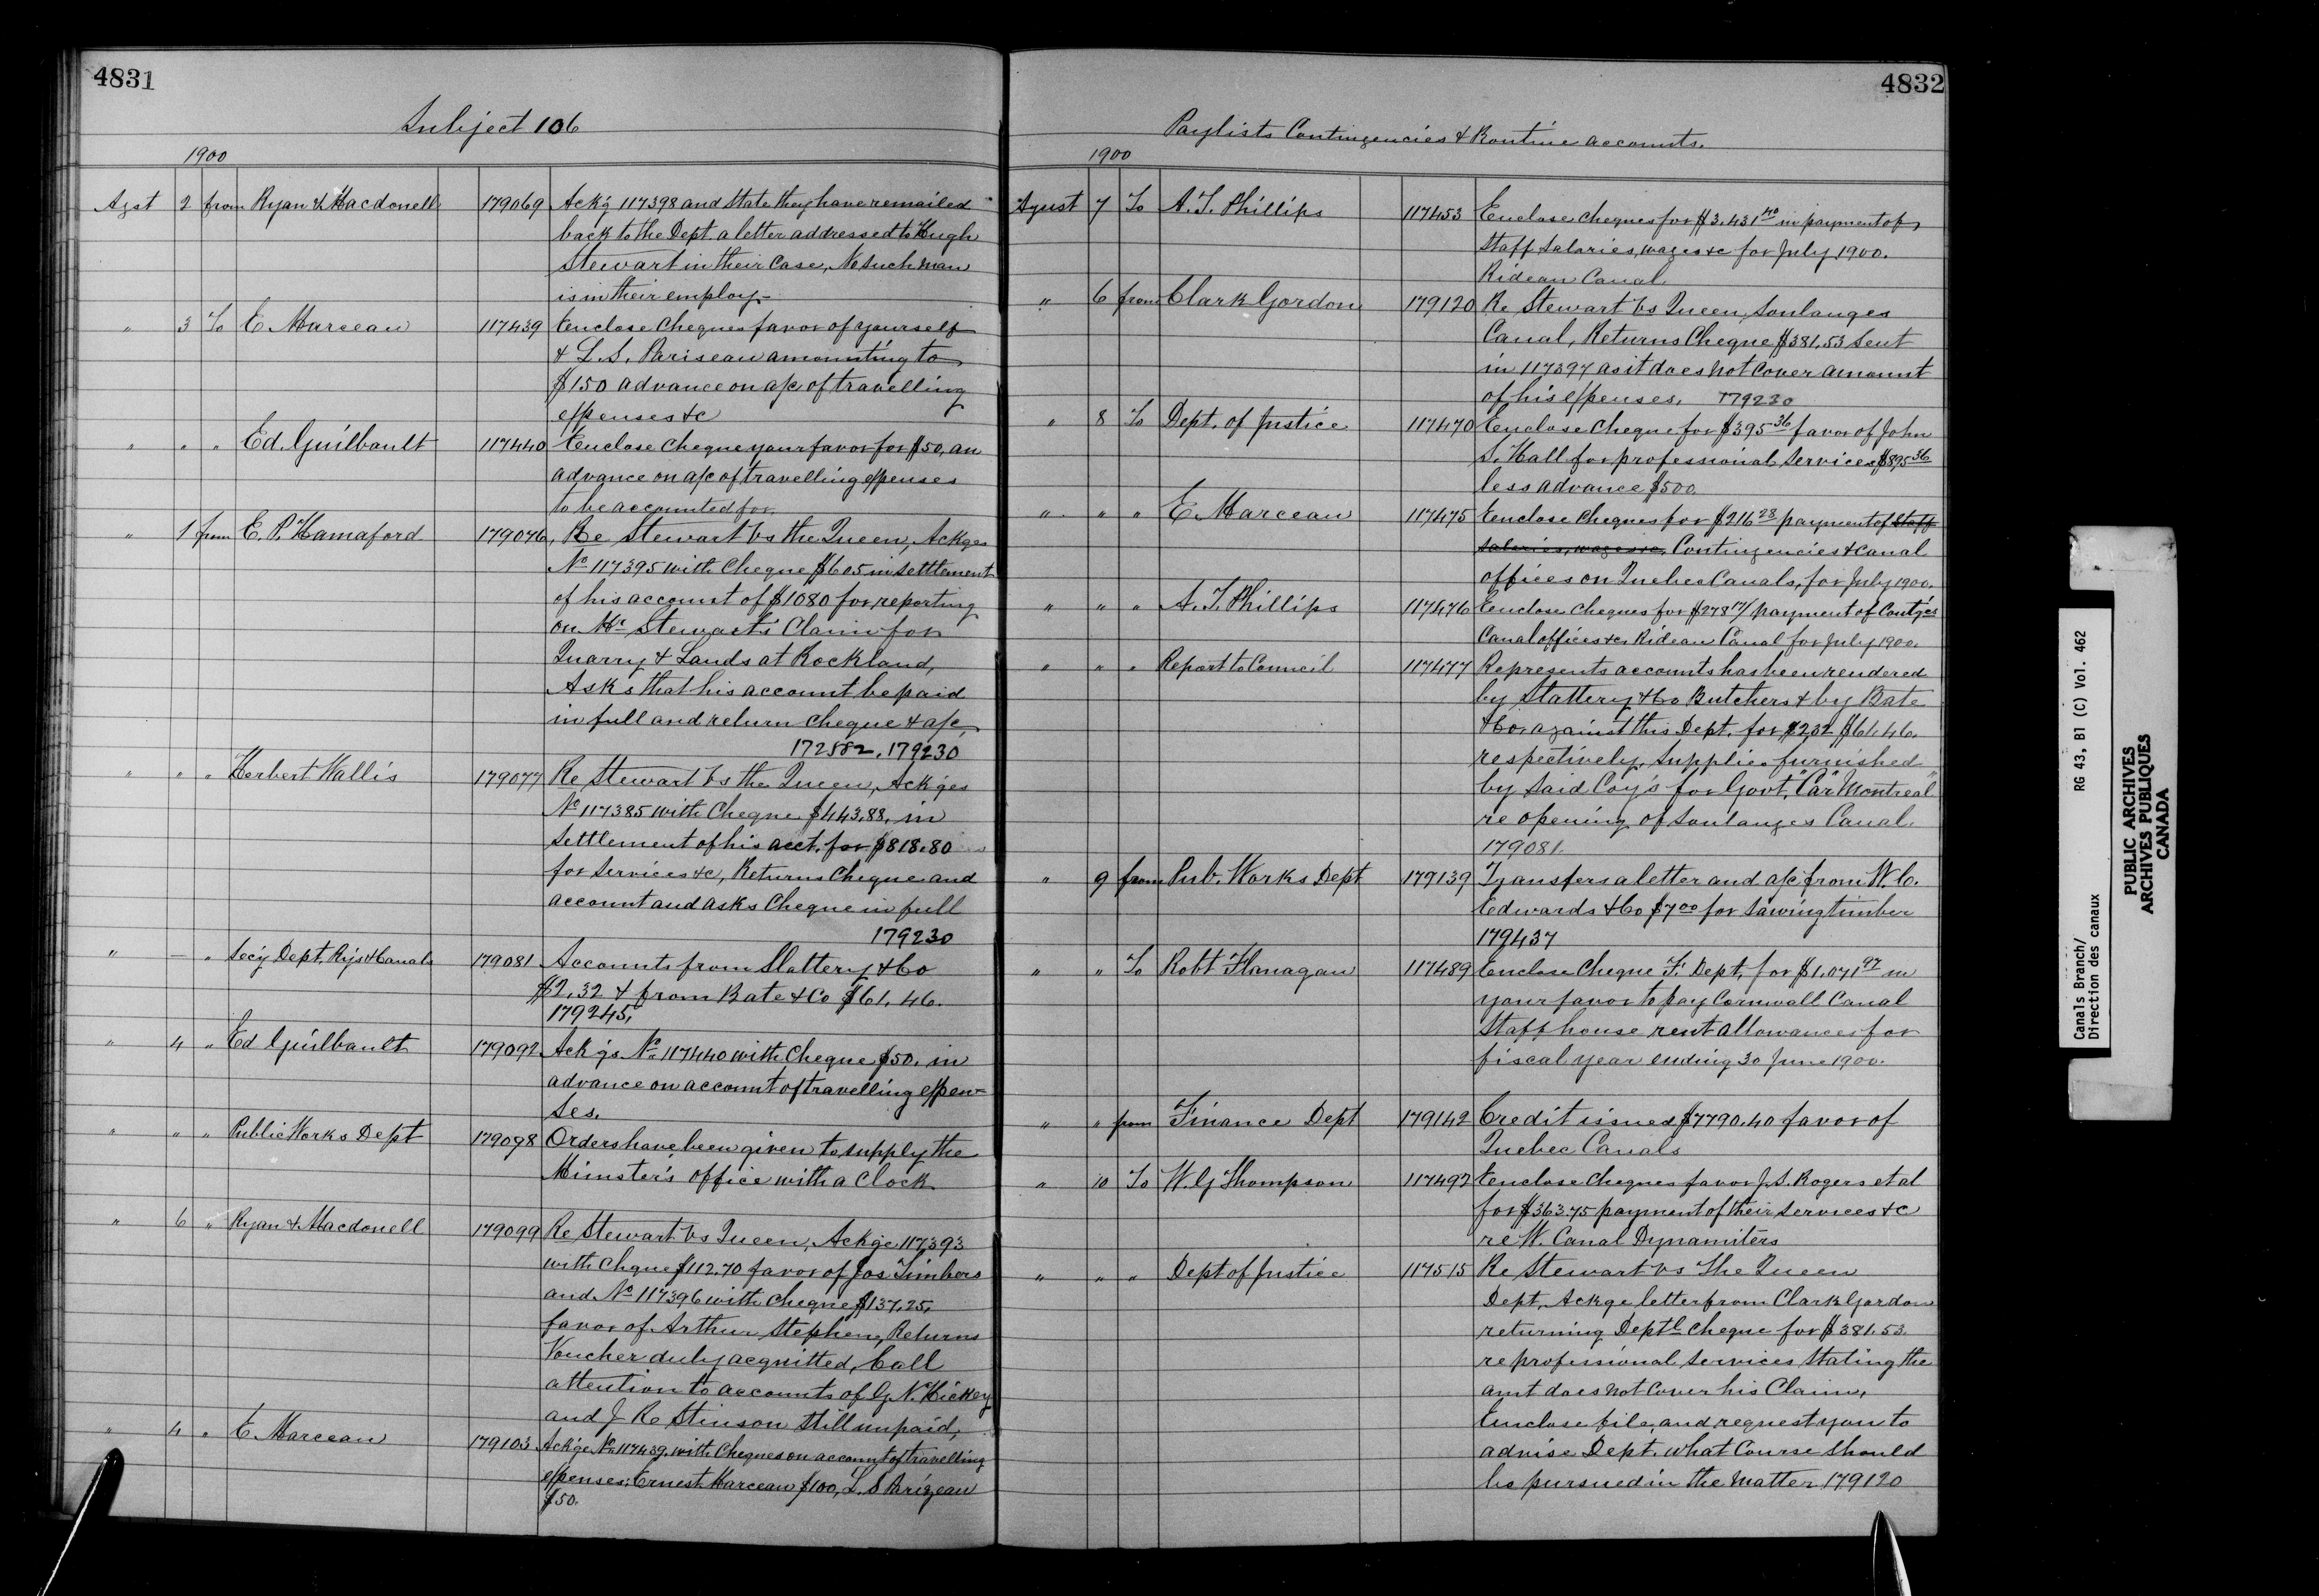 4831
Subject 106
1900
Agst 2 from Ryan & Macdonell 179069 Ackg 117398 and state they have remailed
back to the Dept. a letter addressed to Hugh
Stewart in their Case, No such man
is in their employ.
" 3 To E. Marceau 117439 Enclose cheques favor of yourself
& L. S. Pariseau amounting to
$150 advance on a/c of travelling
expenses &c
" " " Ed. Guilbault 117440 Enclose Cheque your favor for $50, an
advance on a/c of travelling expenses
to be accounted for.
" 1 from E. P. Hannaford 179076 Re Stewart Vs the Queen, Ackges
No 117395 with Cheque $605 in settlement
of his account of $1080 for reporting
on Mr Stewart's Claim for
Quarry & Lands at Rockland,
Asks that his account be paid
in full and return cheque & a/c
172582. 179230
" " " Herbert Wallis 179077 Re Stewart Vs the Queen, Ackges
No 117385 with Cheque $443.88. in
settlement of his acct. for $818.80
for services &c, Returns Cheque and
account and asks Cheque in full
179230
" — " Secy Dept. Rys & Canals 179081 Accounts from Slattery & Co
$2.32 & from Bate & Co $61.46.
179245.
" 4 " Ed Guilbault 179092 Ackgs No 117440 with Cheque $50. in
advance on account of travelling expen-
ses.
" " " Public Works Dept 179098 Orders have been given to supply the
Minister's office with a Clock.
" 6 " Ryan & Macdonell 179099 Re Stewart Vs Queen, Ackge 117393
with Chque $112.70 favor of Jos Timbers
and No 117396 with Cheque $137.25.
favor of Arthur Stephens, Returns
Voucher duly acquitted, Call
attention to accounts of G. N. Hickey
and J Re Stinson still unpaid,
" 4 " E. Marceau 179103 Ackge No 117439. with Cheques on account of travelling
expenses: Ernest Marceau $100, L. S Parizeau
$50.
4832
Paylists Contingencies & Routine accounts.
1900
August 7 To A. T. Phillips 117453 Enclose cheques for $3.431 40 in payment of
Staff Salaries, wages &c for July 1900.
Rideau Canal
" 6 from Clark Gordon 179120 Re Stewart Vs Queen, Soulanges
Canal, Returns Cheque $381.53 Sent
in 117397 as it does not Cover amount
of his expenses. 179230
" 8 To Dept. of Justice 117470 Enclose Cheque for $395 36 favor of John
S. Hall for professional Services $895 36
less advance $500.
" " " E. Marceau 117475 Enclose Cheques for $216 28 payment of Staff
Salaries, wages &c, Contingencies & Canal
offices on Quebec Canals, for July 1900.
" " " A. T. Phillips 117476 Enclose Cheques for $278 17/ payment of Contg'es
Canal offices &c Rideau Canal for July 1900.
" " " Report to Council 117477 Represents accounts has been rendered
by Slattery & Co Butchers & by Bate
& Co. against this Dept. for $2.32 $61.46.
respectively, Supplies furnished
by Said Coy's for Govt. "Car Montreal"
re opening of Soulanges Canal.
179081.
" 9 from Pub. Works Dept 179139 Transfers a letter and a/c from W. C.
Edwards & Co $7 00 for Sawing timber
179437
" " To Robt Flanagan 117489 Enclose Cheque F. Dept. for $1,071 97 in
your favor to pay Cornwall Canal
Staff house rent allowances for
fiscal year ending 30 June 1900.
" " from Finance Dept 179142 Credit issued $7790.40 favor of
Quebec Canals
" 10 To W. G Thompson 117492 Enclose Cheques favor J. S. Rogers et al
for $363.75 payment of their Services &c
re W. Canal Dynamiters
" " " Dept of Justice 117515 Re Stewart Vs The Queen
Dept. Ackge letter from Clark Gordon
returning Deptl cheque for $381.53.
re professional Services Stating the
amt does not Cover his Claim,
Enclose file, and request you to
advise Dept. what Course Should
be pursued in the Matter 179120
Canals Branch/
Direction des canaux
RG 43, B1 (C) Vol. 462
PUBLIC ARCHIVES
ARCHIVES PUBLIQUES
CANADA